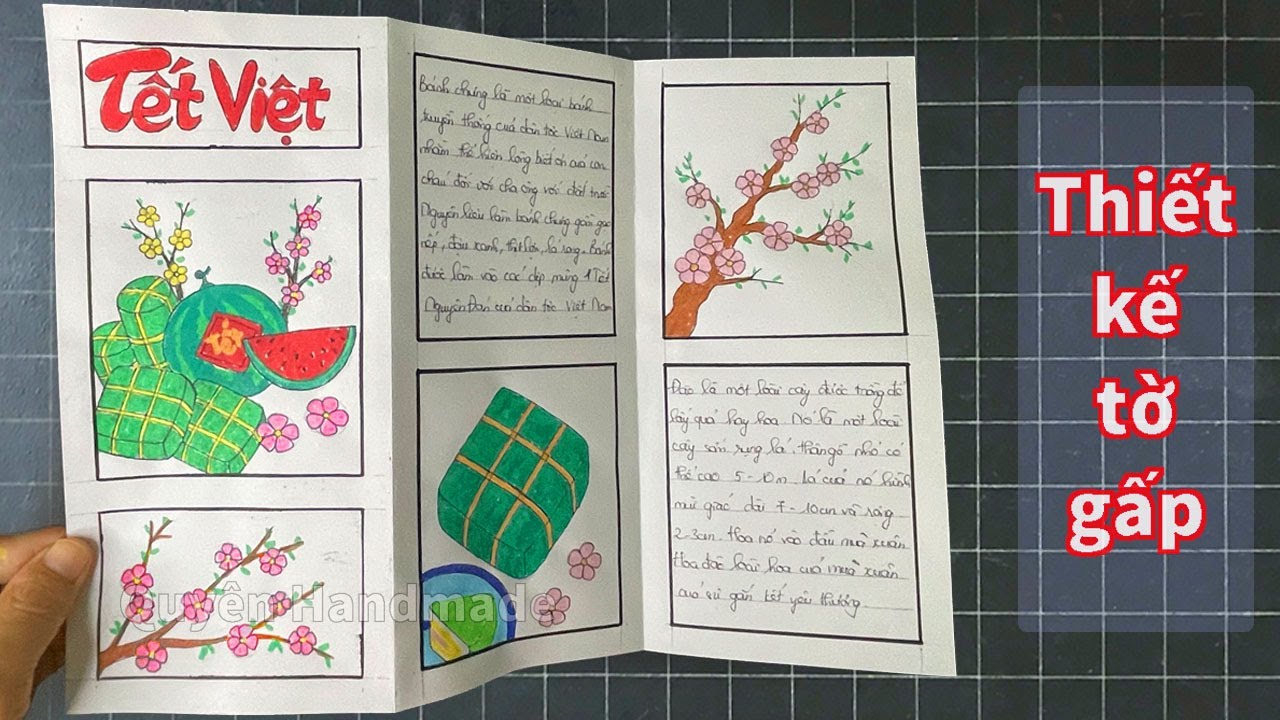 Tết Việt
Bánh chưng là một loại bánh
truyền thống của dân tộc Việt Nam
nhằm thể hiện lòng biết ơn của con
cháu đối với cha ông với đất trời
Nguyên liệu làm bánh chưng gồm gạo
nếp, đậu xanh, thịt lợn, lá rong. Bánh
được làm vào các dịp mừng 1 Tết
Nguyên Đán của dân tộc Việt Nam
Đào là một loài cây được trồng để
lấy quả hay hoa. Nó là một loài
cây sớm rụng lá, thân gỗ nhỏ có
thể cao 5-10m. lá của nó hình
mũi giác dài 7-10cm và rộng
2-3cm. Hoa nở vào đầu mùa xuân
Hoa đào loài hoa của mùa xuân
của sự gắn kết yêu thương.
Quyên Handmade
Thiết
kế
tờ
gấp